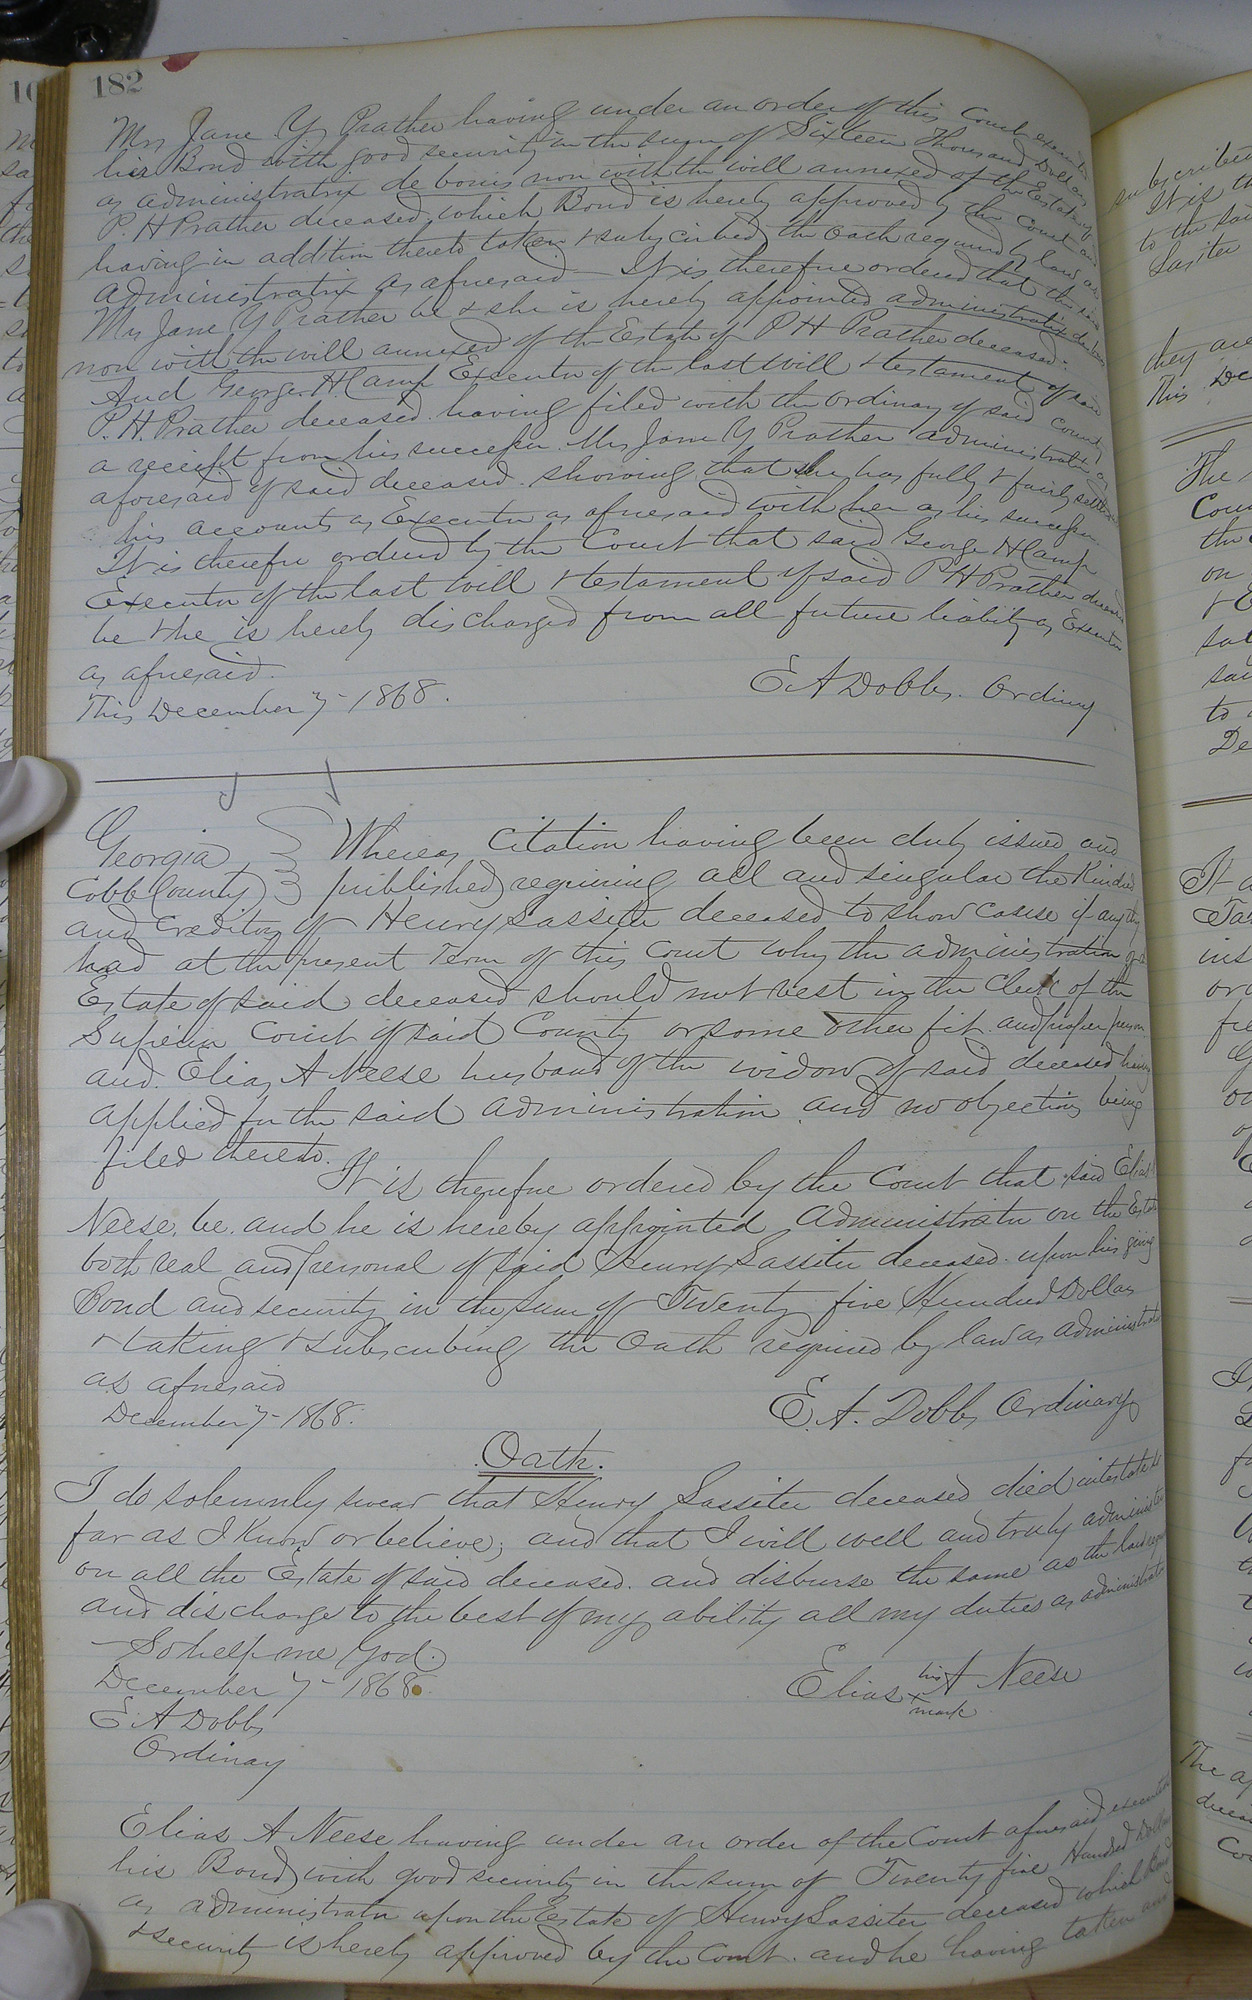 182
Mrs Jane Y Prather having under an order of this Court executed
her Bond with good security in the sum of Sixteen Thousand Dollars
as administratrix de bonis non with the will annexed of the Estate of
P. H Prather deceased, which Bond is hereby approved by the Court and
having in addition thereto taken & subscribed the oath required by law as
administratrix as aforesaid It is therefore ordered that the said
Mrs Jane Y Prather be & she is hereby appointed administratrix de bonis
non with the will annexed of the Estate of P H Prather deceased.
And George H Camp Executor of the last Will & testament of said
P. H. Prather deceased having filed with the ordinary of said County
a receipt from his successor Mrs Jane Y Prather administratrix as
aforesaid of said deceased. showing that he has fully & fairly settled
his accounts as Executor as aforesaid with her as his successor
It is therefore ordered by the Court that said George H Camp
Executor of the last Will & testament of said P H Prather deceased
be & he is hereby discharged from all future liability as Executor
as aforesaid.
This December 7 - 1868.
E. A Dobbs. Ordinary
Georgia
Cobb County
Whereas Citation having been duly issued and
published requiring all and singular the Kindred
and Creditors of Henry Lassiter deceased to show cause if any they
had at the present Term of this Court why the administration of the
Estate of said deceased should not vest in the Clerk of the
Superior Court of said County or some other fit and proper person
and Elias A Neese husband of the widow of said deceased having
applied for the said administration and no objections being
filed thereto.
It is therefore ordered by the Court that said Elias A
Neese, be and he is hereby appointed administrator on the Estate
both real and personal of said Henry Lassiter deceased upon his giving
Bond and security in the sum of Twenty five Hundred Dollars
& taking & subscribing the Oath required by law as administrator
as aforesaid
December 7 - 1868.
E. A. Dobbs Ordinary
Oath.
I do solemnly swear that Henry Lassiter deceased died intestate so
far as I Know or believe, and that I will well and truly administer
on all the Estate of said deceased. and disburse the same as the law requires
and discharge to the best of my ability all my duties as administrator
So help me God.
December 7 - 1868.
Elias his x mark A Neese
E A Dobbs
Ordinary
Elias A Neese having under an order of the Court aforesaid executed
his Bond with good security in the sum of Twenty five Hundred Dollars
as administrator upon the Estate of Henry Lassiter deceased which Bond
& security is hereby approved by the Court. and he having taken and